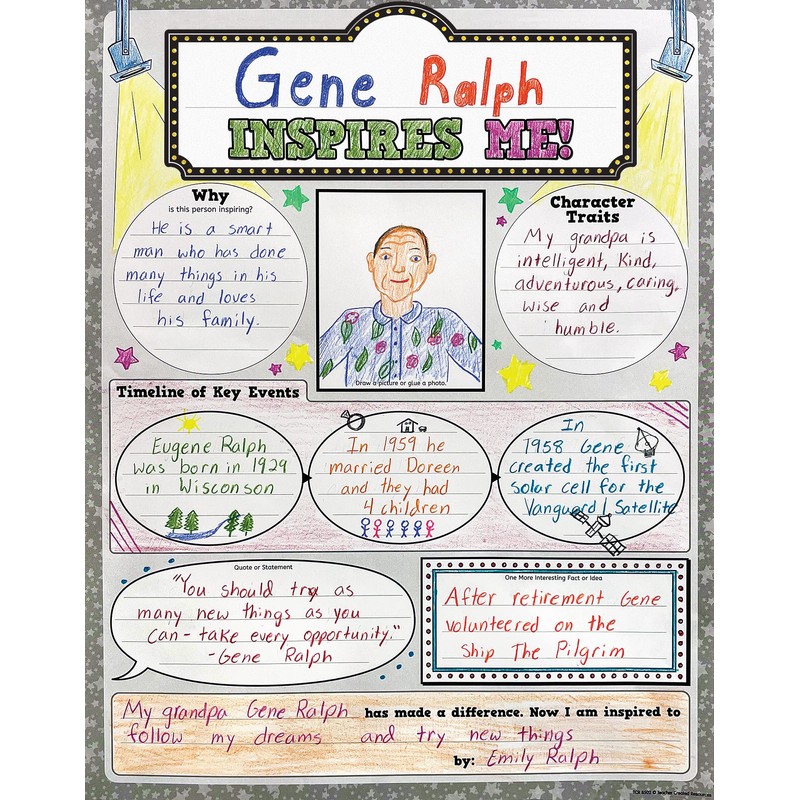 Gene Ralph
INSPIRES ME!
Why
is this person inspiring?
He is a smart
man who has done
many things in his
life and loves
his family.
Draw a picture or glue a photo.
Character
Traits
My grandpa is
intelligent, Kind,
adventurous, caring,
wise and
humble.
Timeline of Key Events
Eugene Ralph
was born in 1929
in Wisconson
In 1959 he
married Doreen
and they had
4 children
In
1958 Gene
created the first
solar cell for the
Vanguard 1 Satellite
Quote or Statement
"You should try as
many new things as you
can - take every opportunity."
-Gene Ralph
One More Interesting Fact or Idea
After retirement Gene
volunteered on the
Ship The Pilgrim
My grandpa Gene Ralph has made a difference. Now I am inspired to
follow my dreams and try new things
by: Emily Ralph
TCR 8302 © Teacher Created Resources